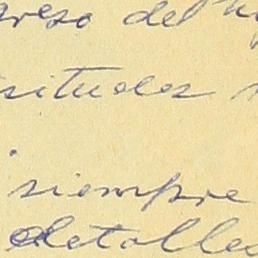 greso del
situdes
siempre
detalles